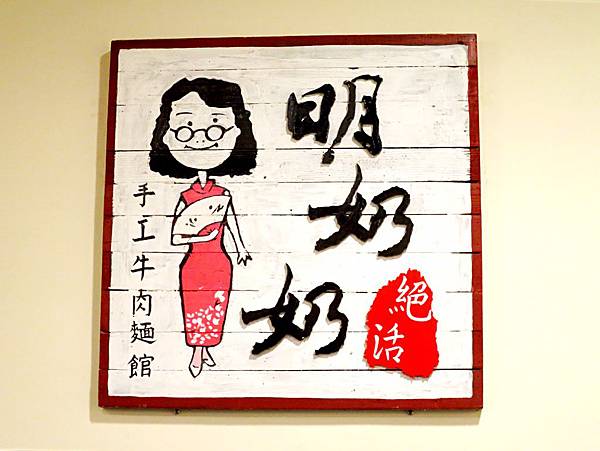 明奶奶
絕活
手工牛肉麵館